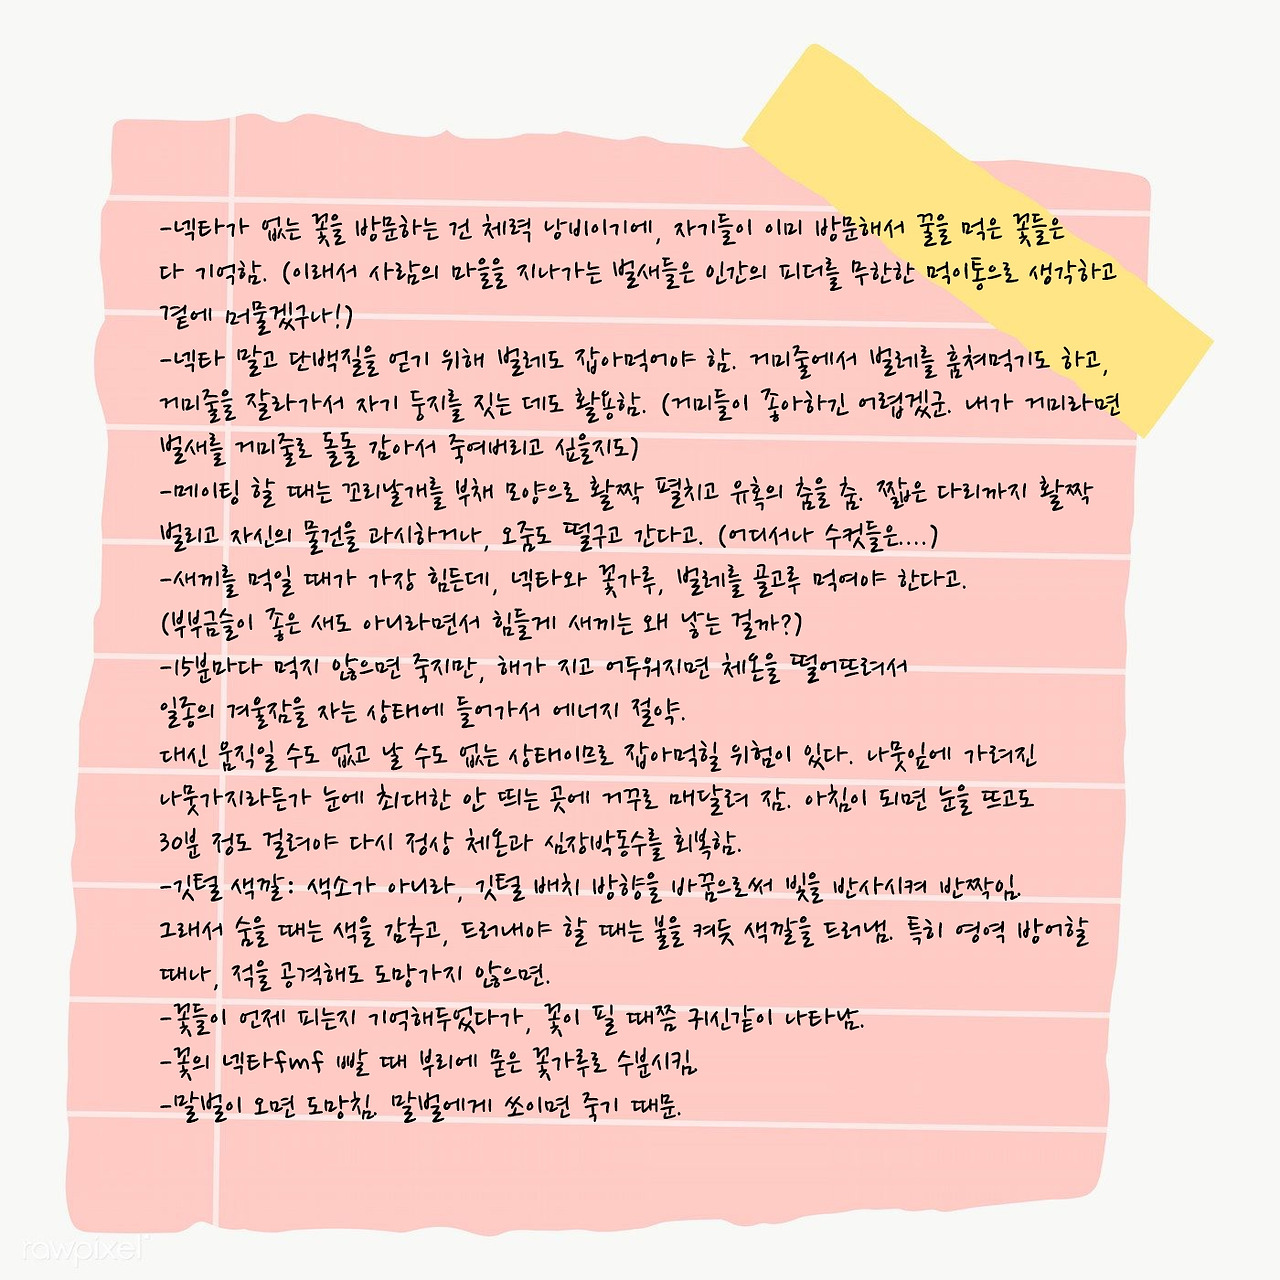 -넥타가 없는 꽃을 방문하는 건 체력 낭비이기에, 자기들이 이미 방문해서 꿀을 먹은 꽃들은
다 기억함. (이래서 사람의 마을을 지나가는 벌새들은 인간의 피더를 무한한 먹이통으로 생각하고
곁에 머물겠구나!)
-넥타 말고 단백질을 얻기 위해 벌레도 잡아먹어야 함. 거미줄에서 벌레를 훔쳐먹기도 하고,
거미줄을 잘라가서 자기 둥지를 짓는 데도 활용함. (거미들이 좋아하긴 어렵겠군. 내가 거미라면
벌새를 거미줄로 돌돌 감아서 죽여버리고 싶을지도)
-메이팅 할 때는 꼬리날개를 부채 모양으로 활짝 펼치고 유혹의 춤을 춤. 짧은 다리까지 활짝
벌리고 자신의 물건을 과시하거나, 오줌도 떨구고 간다고. (어디서나 수컷들은....)
-새끼를 먹일 때가 가장 힘든데, 넥타와 꽃가루, 벌레를 골고루 먹여야 한다고.
(부부금슬이 좋은 새도 아니라면서 힘들게 새끼는 왜 낳는 걸까?)
-15분마다 먹지 않으면 죽지만, 해가 지고 어두워지면 체온을 떨어뜨려서
일종의 겨울잠을 자는 상태에 들어가서 에너지 절약.
대신 움직일 수도 없고 날 수도 없는 상태이므로 잡아먹힐 위험이 있다. 나뭇잎에 가려진
나뭇가지라든가 눈에 최대한 안 띄는 곳에 거꾸로 매달려 잠. 아침이 되면 눈을 뜨고도
30분 정도 걸려야 다시 정상 체온과 심장박동수를 회복함.
-깃털 색깔: 색소가 아니라, 깃털 배치 방향을 바꿈으로써 빛을 반사시켜 반짝임.
그래서 숨을 때는 색을 감추고, 드러내야 할 때는 불을 켜듯 색깔을 드러냄. 특히 영역 방어할
때나, 적을 공격해도 도망가지 않으면.
-꽃들이 언제 피는지 기억해두었다가, 꽃이 필 때쯤 귀신같이 나타남.
-꽃의 넥타fmf 빨 때 부리에 묻은 꽃가루로 수분시킴.
-말벌이 오면 도망침. 말벌에게 쏘이면 죽기 때문.
rawpixel